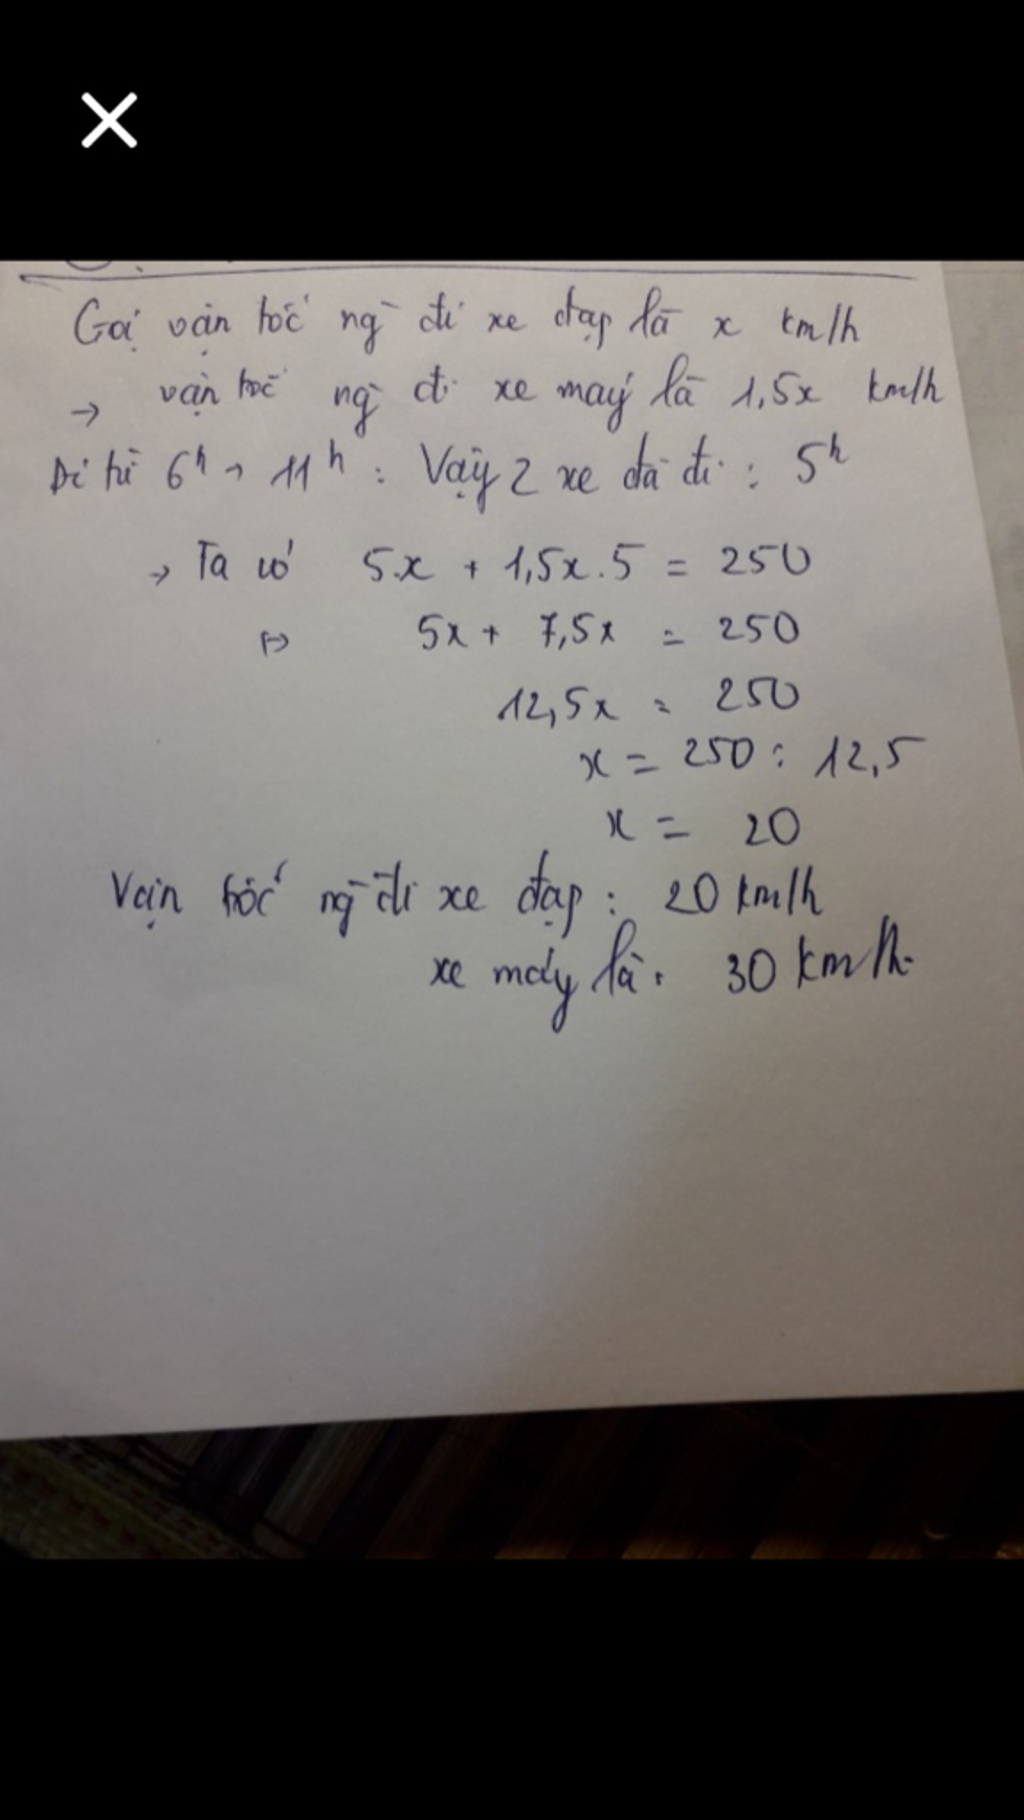 Gọi vận tốc ng` đi xe đạp là x km/h
→ vận tốc ng` đi xe máy là 1,5x km/h
Đi từ 6h → 11h : Vậy 2 xe đã đi : 5h
→ Ta có 5.x + 1,5x.5 = 250
⇔ 5x + 7,5x = 250
12,5x = 250
x = 250 : 12,5
x = 20
Vận tốc ng` đi xe đạp : 20 km/h
xe máy là : 30 km/h.